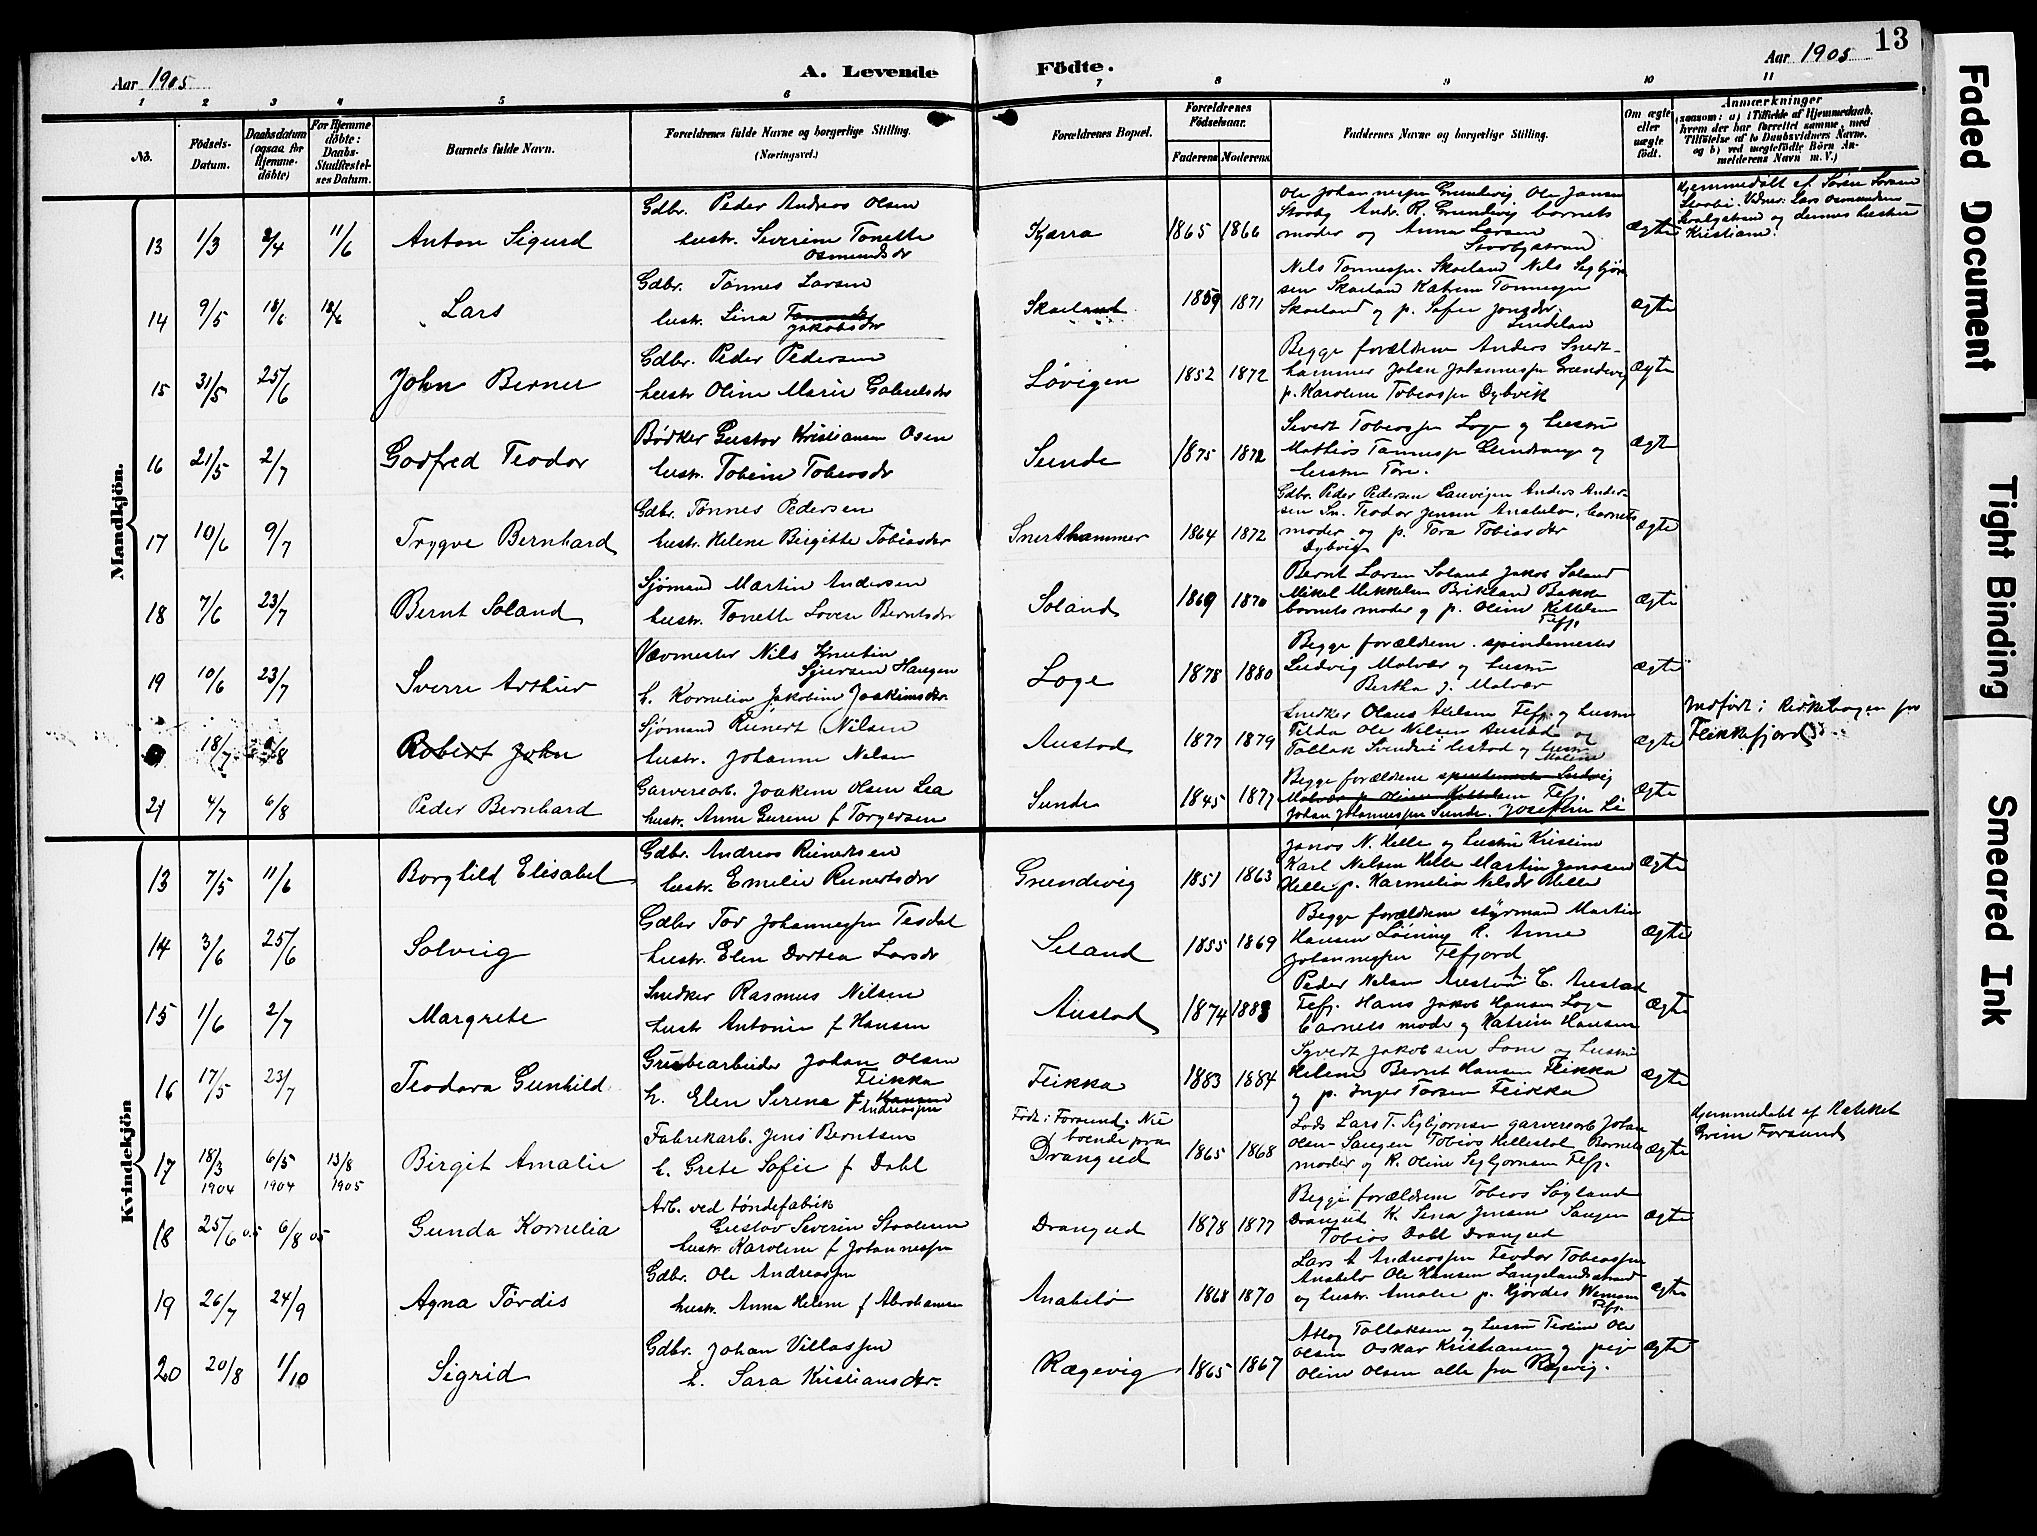 13
Aar 1905
A. Levende
Födte.
Aar 1905
1 2 3 4 5 6 7 8 9 10 11
No.
Födsels-
Datum.
Daabsdatum
(ogsaa for
Hjemme-
döbte)
For Hjemme
döbte:
Daabs-
Stadfæstel-
ses Datum.
Barnets fulde Navn.
Forældrenes fulde Navne og borgerlige Stilling.
(Næringsvei.)
Forældrenes Bopæl.
Forældrenes
Födselsaar.
Faderens Moderens
Faddernes Navne og borgerlige Stilling.
Om ægte
eller
uægte
födt.
Anmærkninger
(saasom: a) i Tilfælde af Hjemmedaab,
hvem der har forrettet samme, med
Tilföielse af to Daabsvidners Navne.
og b) ved uægtefödte Börn An-
melderens Navn m. V.)
Mandkjön.
13 1/3 2/4 11/6 Anton Sigurd
Gdbr. Peder Andreas Olsen
hustr. Severine Tonette
Osmundsdr
Kjørra 1865 1866
Ole Johannessen Grundvig Ole Jansen
Andr. R. Grundvig barnets
moder og Anna Larsen
ægte
Hjemmedøbt af Søren
Vidner: Lars Osmundsen
og dennes hustru
Kristiane.
14 9/5 18/6 18/6 Lars
Gdbr. Tønnes Larsen
hustr. Lina
Jakobsdr
Skaeland 1859 1871
Nils Tønnessen Skaeland Nils Segbjørn
sen Skaeland Katrine Tønnessen
Skaeland og p. Sofie
ægte
15 31/5 25/6 John Berner
Gdbr. Peder Pedersen
hustr Oline Marie Gabrielsdr
Løvigen 1852 1872
Begge forældrene Anders Snert-
hammer Johan Johannessen Grundevig
p. Karoline Tobiassen Dybvik
ægte
16 21/5 2/7 Godfred Teodor
Bødker Gustav Kristiansen Osen
hustr. Tobine Tobiasdr
Sunde 1875 1872
Sivert Tobiassen Loge og hustru
Mathias Tønnessen og
hustru Tore.
ægte
17 10/6 9/7 Trygve Bernhard
Gdbr. Tønnes Pedersen
hustr. Helene Birgitte Tobiasdr
Snerthammer 1864 1872
Gdbr. Peder Pedersen Lauvigen Anders Ander-
sen Sn. Teodor Jensen Anabelø, barnets
moder og p. Tora Tobiasdr
Dybvig
ægte
18 7/6 23/7 Bernt Soland
Sjømand Martin Andersen
hustr. Tonette Lovise Berntsdr
Soland 1869 1870
Bernt Larsen Soland Jakob Soland
Mikal Mikkelsen Birkeland Bakke
barnets moder og p. Oline Kittelsen
Flefj.
ægte
19 10/6 23/7 Sverre Arthur
Vævmester Nils Knutsen
Syvertsen Haugen
h. Kornelia Jakobine Joakimsdr.
Loge 1878 1880
Begge forældrene. spindemester
Ludvig Molvær og hustru
Bertha J. Molvær
ægte
18/7 6/8 Robert John
Sjømand Reinert Nilsen
hustr. Johanne Nilsen
Austad 1877 1879
Snedker Olaus Axelsen Flefj og hustru
Tilda Ole Nilsen Austad og
Tallak Sundre Austad og hustru
Maline
ægte
Indført i Kirkebogen for
Flekkefjord
21 4/7 6/8 Peder Bernhard
Garverarb. Joakim Olsen Lea
hustr. Anne Gurine f Torgersen
Sunde 1845 1877
Begge forældrene spindemester Ludvig
Molvær p. Oline Kittelsen Flefj
Johan Johannessen Sunde. Josefine Li
ægte
Kvindekjön
13 7/5 11/6 Borghild Elisabet
Gdbr. Andreas Reinertsen
hustr. Emelie Reinertsdr
Grundvig 1851 1863
Janos N. Helle og hustru Kristine
Karl Nilsen Helle Martin Janosen
Helle p. Karmelia Nilsdr Helle
ægte
14 3/6 25/6 Solveig
Gdbr Tor Johannessen Tesdal
hustr. Elen Dortea Larsdr
Seland 1855 1869
Begge forældrene styrmand Martin
Hansen Løining K. Anne
Johannessen Flefjord
ægte
15 1/6 2/7 Margrete
Snedker Rasmus Nilsen
hustr Antonie f Hansen
Austad 1874 1883
Peder Nilsen Austad h. C. Austad
Flefj. Hans Jakob Hansen Loge
barnets moder og Katrine Hansen
ægte
16 17/5 23/7 Teodora Gunhild
Grubearbeider Johan Olsen
Fleikka
h. Elen Serena f Hansen
Andreassen
Fleikka 1883 1884
Syvert Jakobsen Lom og hustru
Helene Bernt Hansen Fleikka
og p. Inger Torsen Fleikka
ægte
17 18/3 1904 6/5 1904 13/8 1905 Birgit Amalie
Fabrikarb. Jens Berntsen
h. Grete Sofie f Dahl
Født i Forsund. Nu
boende paa
Drangeid 1865 1868
Lods Lars T. Segbjørnsen garverarb Johan
Olsen Haugen Tobias Hellestøl Barnets
moder og K. Oline Segbjørnsen Flefj.
ægte
Hjemmedøbt af Kateket
Grim Forsund
18 25/6 05 6/8 05 Gunda Kornelia
Arb. ved tøndefabrik
Gustav Severin Staalesen
hustr Karoline f Johannessen
Drangeid 1878 1877
Begge forældrene Tobias Søyland
Drangeid K. Sina Jensen Haugen
Tobias Dahl Drangeid
ægte
19 26/7 24/9 Agna Tordis
Gdbr. Ole Andreassen
hustr. Anna Helene f Abrahamsen
Anabelø 1868 1870
Lars A Andreassen Teodor Tobiassen
Anabelø Ole Hansen Langelandsstrand
og hustr. Amalie p. Hjørdis
Flefj.
ægte
20 20/8 1/10 Sigrid
Gdbr. Johan Villassen
h. Sara Kristiansdr.
Rægevig 1865 1867
Aslag Tallaksen og hustru Teoline Ole
Olsen Oskar Kristiansen og pige
Oline Olsen alle fra Rægevig.
ægte
Faded Document
Tight Binding
Smeared Ink